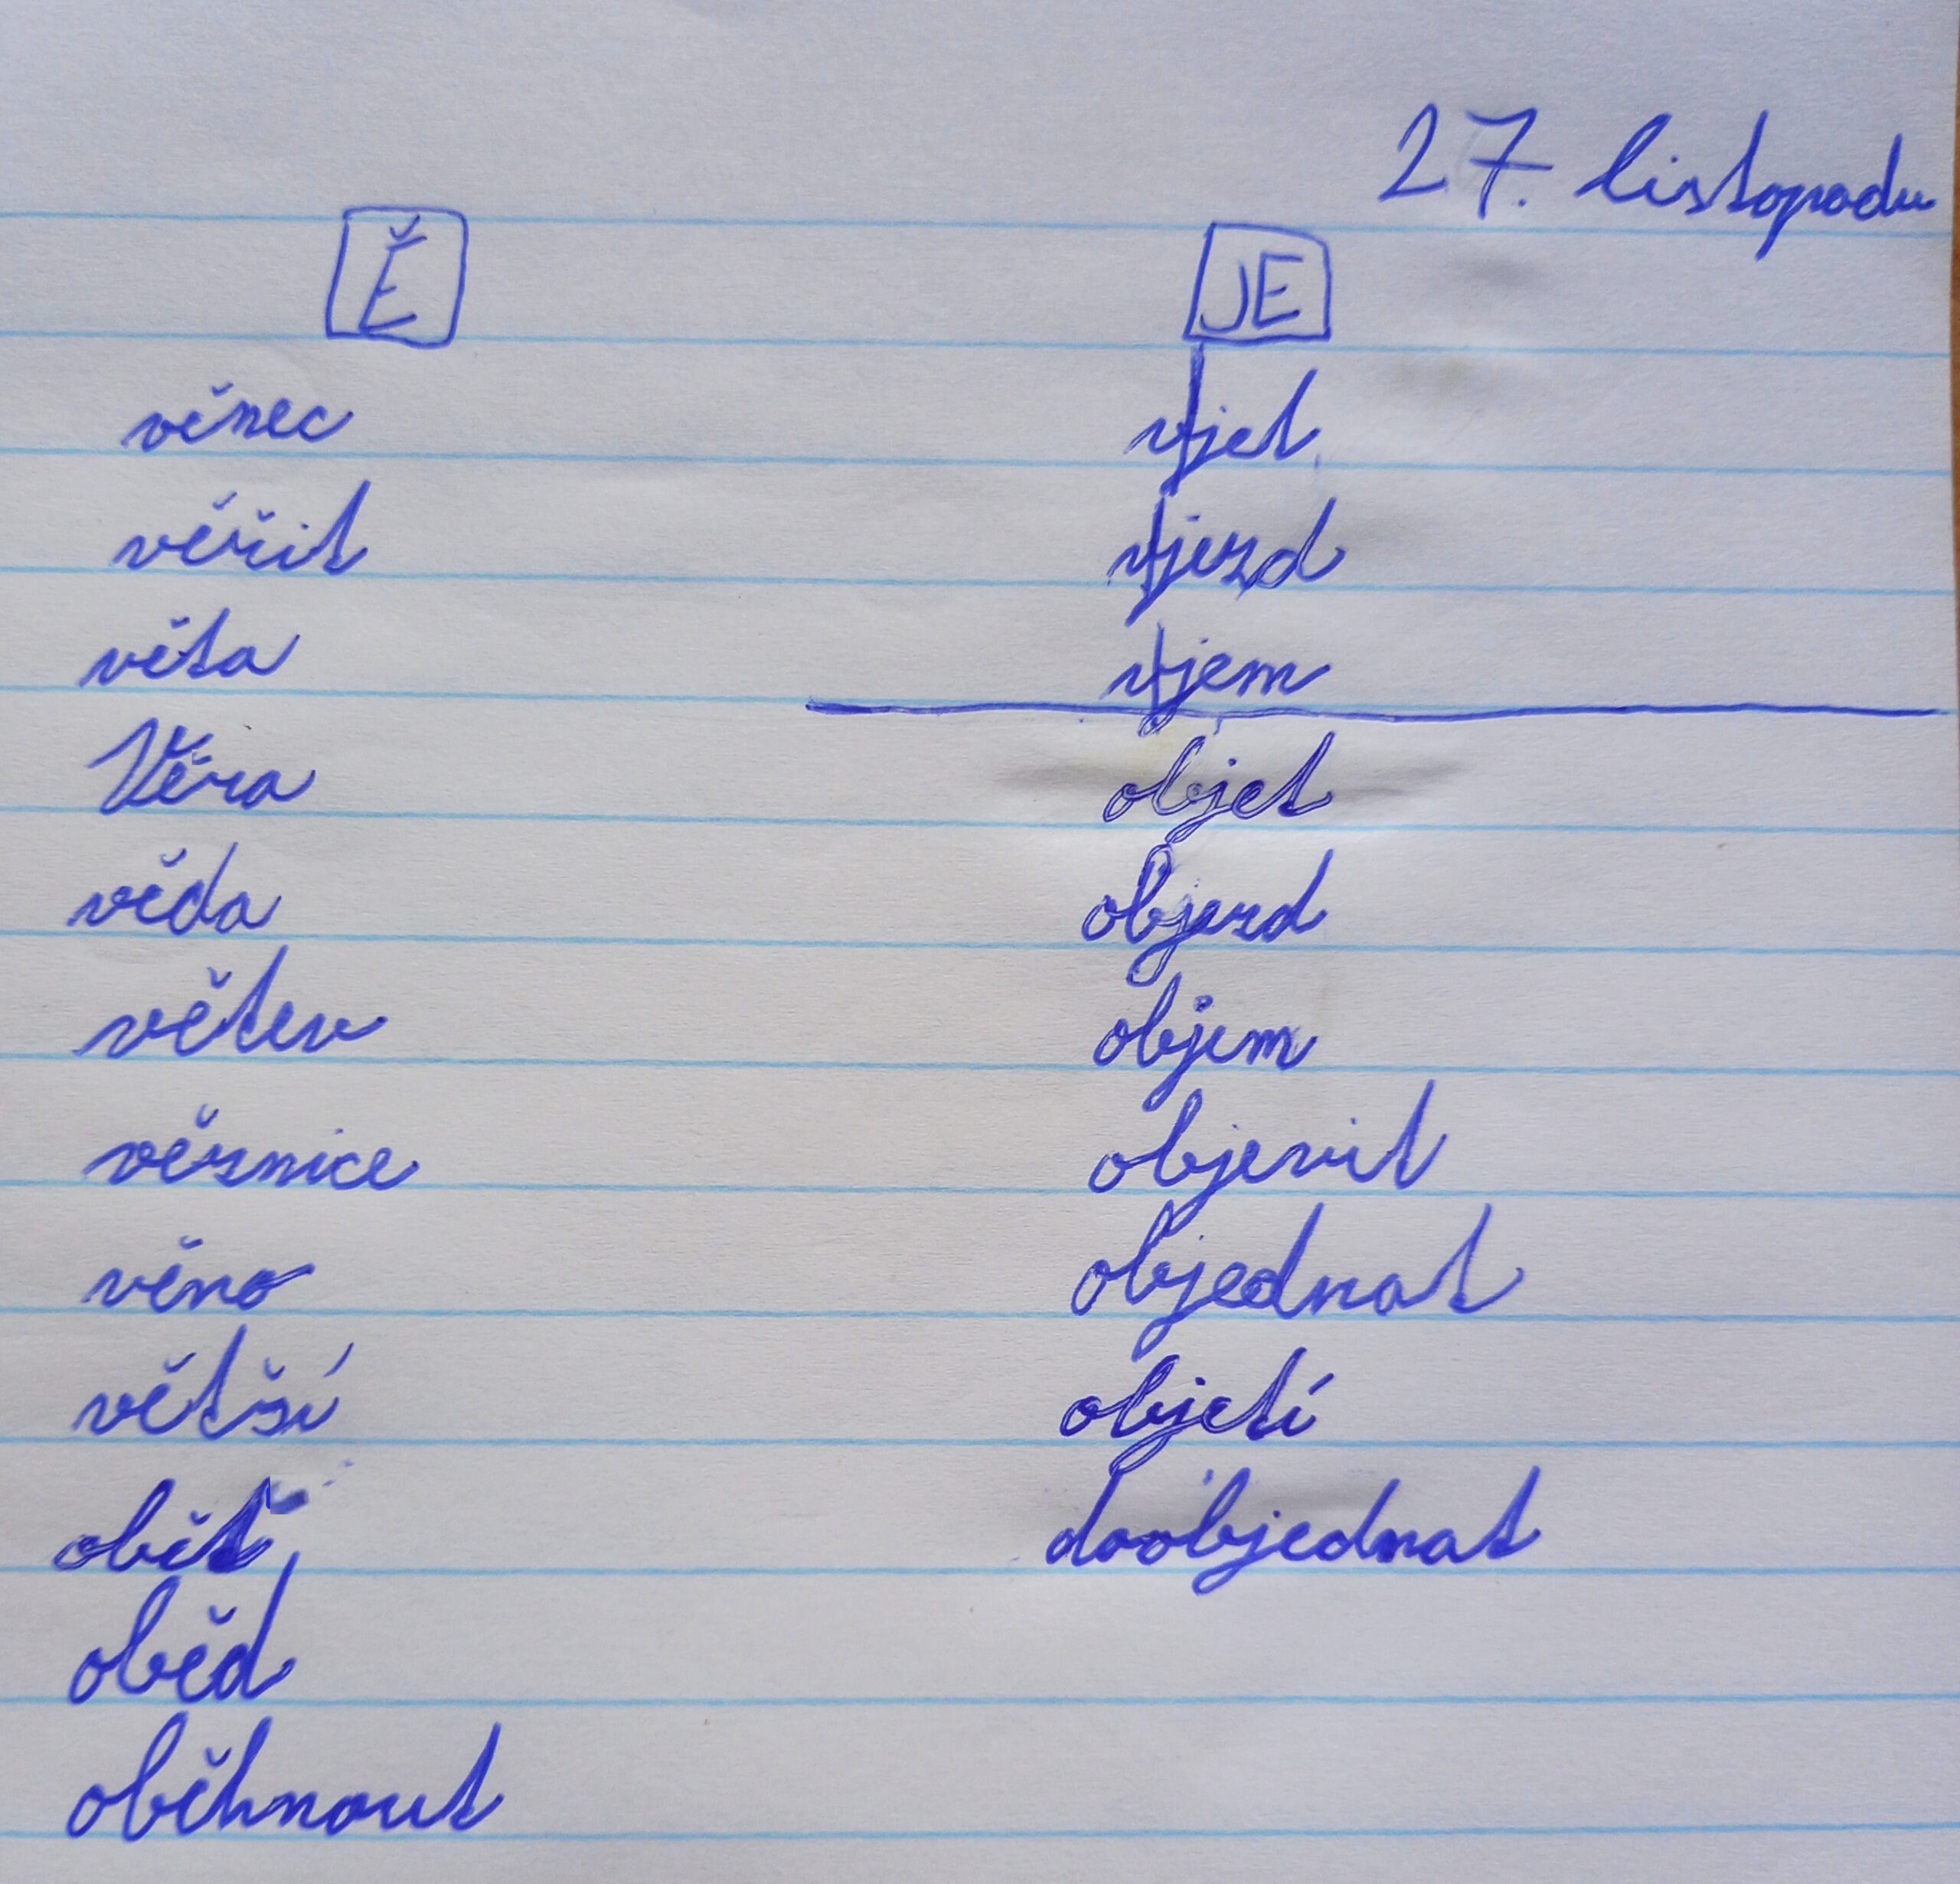 27. listopadu
Ě JE
věnec vjet
věřit vjezd
věta vjem
Věra objet
věda objezd
větev objem
věznice objevit
věno objednat
větší objetí
oběť doobjednat
oběd
oběhnout